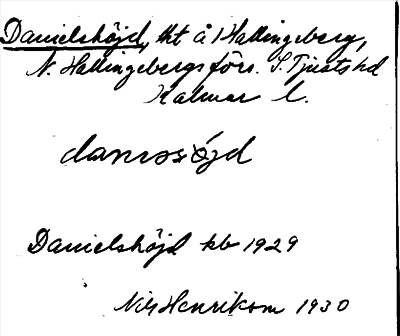 Danielshöjd, tht å Hallingeberg,
N. Hallingebergs förs. S. Tjusts hd
Kalmar l.
Danielshöjd kb 1929
Nils Henrikson 1930